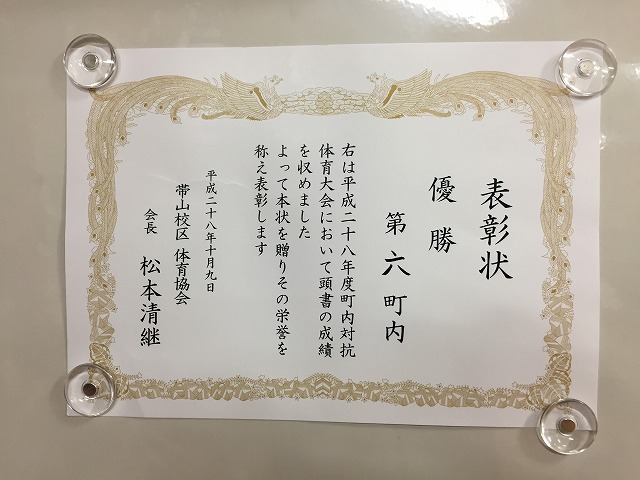 表彰状
優勝
第六町内
右は平成二十八年度町内対抗
体育大会において頭書の成績
を収めました
よって本状を贈りその栄誉を
称え表彰します
平成二十八年十月九日
帯山校区 体育協会
会長 松本清継